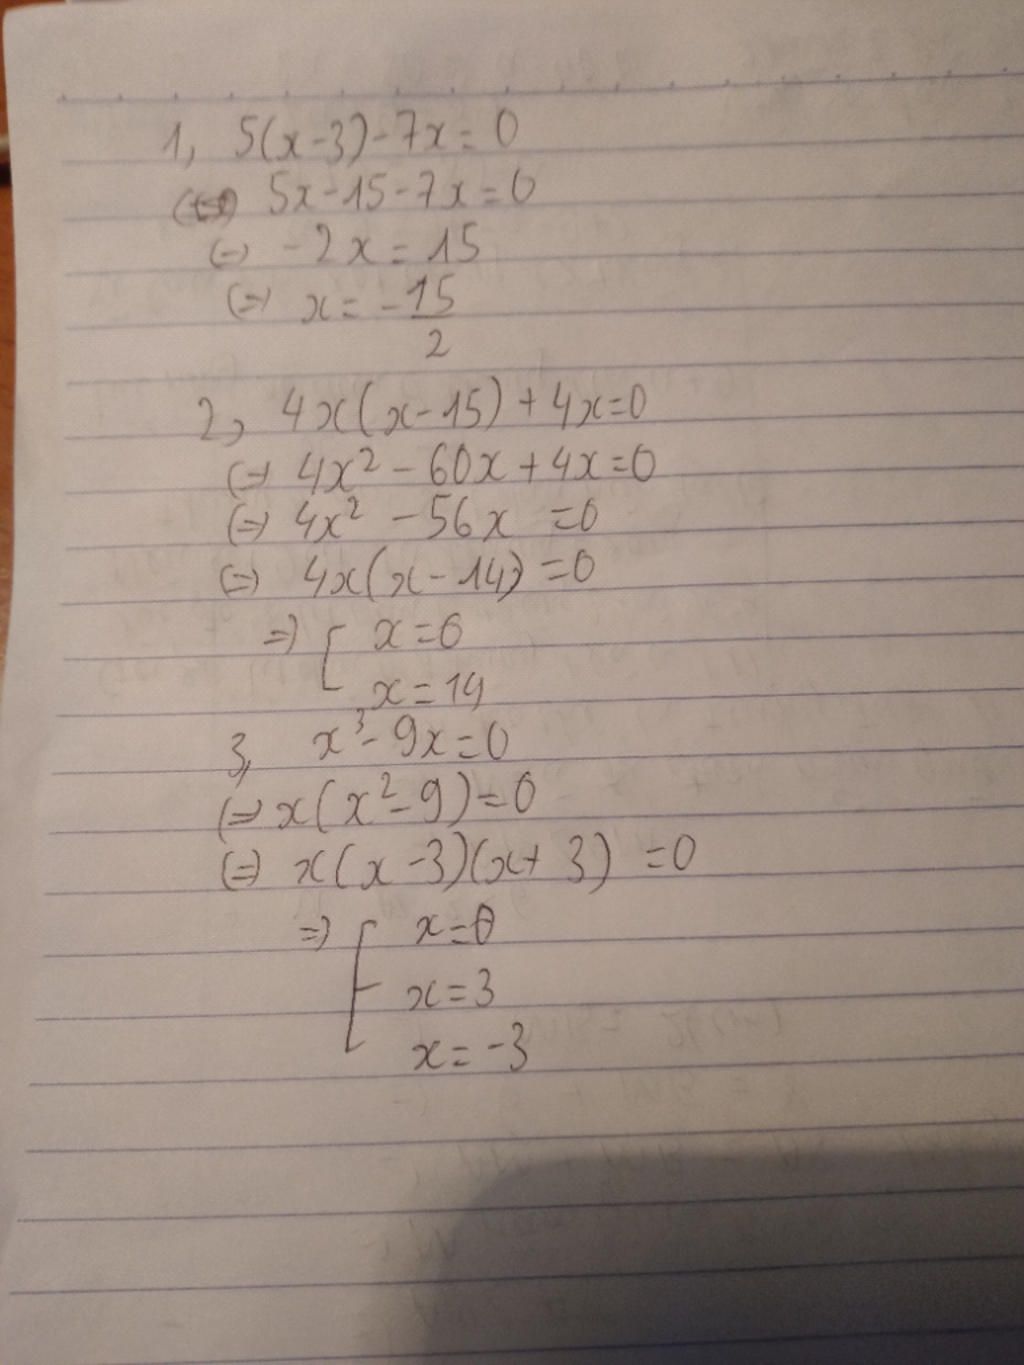 1, 5(x-3)-7x=0
(=) 5x-15-7x=0
(=) -2x=15
(=) x=-15/2
2, 4x(x-15)+4x=0
(=) 4x²-60x+4x=0
(=) 4x²-56x=0
(=) 4x(x-14)=0
=) [ x=0
x=14
3, x³-9x=0
(=) x(x²-9)=0
(=) x(x-3)(x+3)=0
=) [ x=0
x=3
x=-3